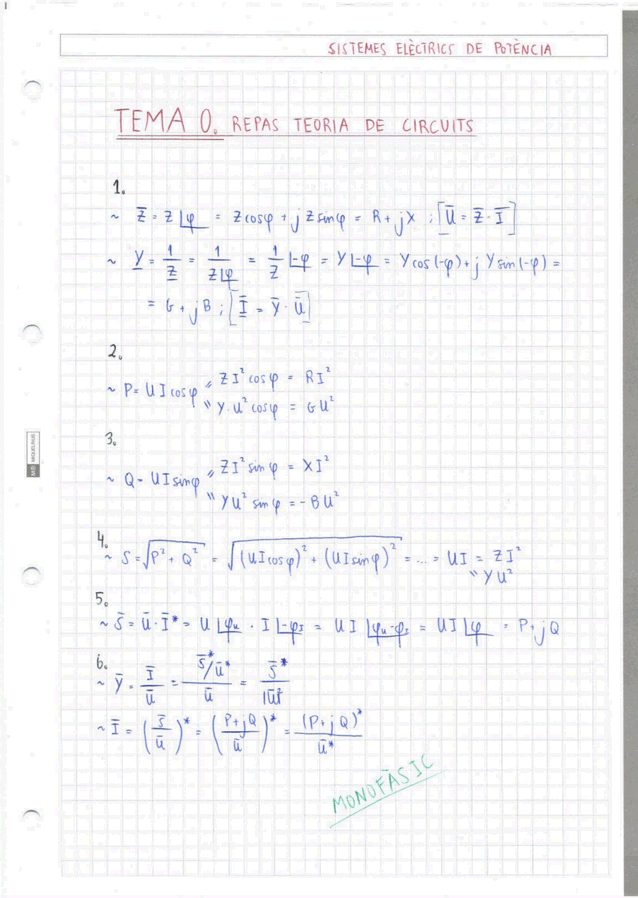 SISTEMES ELÈCTRICS DE POTÈNCIA
TEMA 0. REPAS TEORIA DE CIRCUITS
1.
~ Z̅ = Z∠φ = Z cosφ + j Z sinφ = R + jX ; [U̅ = Z̅ · I̅]
~ Y = 1/Z = 1/Z∠φ = 1/Z ∠-φ = Y∠-φ = Y cos(-φ) + j Y sin(-φ) =
= G + jB ; [I̅ = Y̅ · U̅]
2.
~ P = U I cosφ
= Z I² cosφ = R I²
= Y · U² cosφ = G U²
3.
~ Q = U I sinφ
= Z I² sinφ = X I²
= Y U² sinφ = - B U²
4.
~ S = √(P² + Q²) = √((U I cosφ)² + (U I sinφ)²) = ... = U I = Z I²
= Y U²
5.
~ S̅ = U̅ · I̅* = U∠φu · I∠-φI = U I ∠φu-φI = U I ∠φ = P + jQ
6.
~ Y̅ = I̅/U̅ = (S̅*/U̅*)/U̅ = S̅*/|U̅|²
~ I̅ = (S̅/U̅)* = ((P + jQ)/U̅)* = (P + jQ)*/U̅*
MONOFÀSIC
MIQUELRIUS